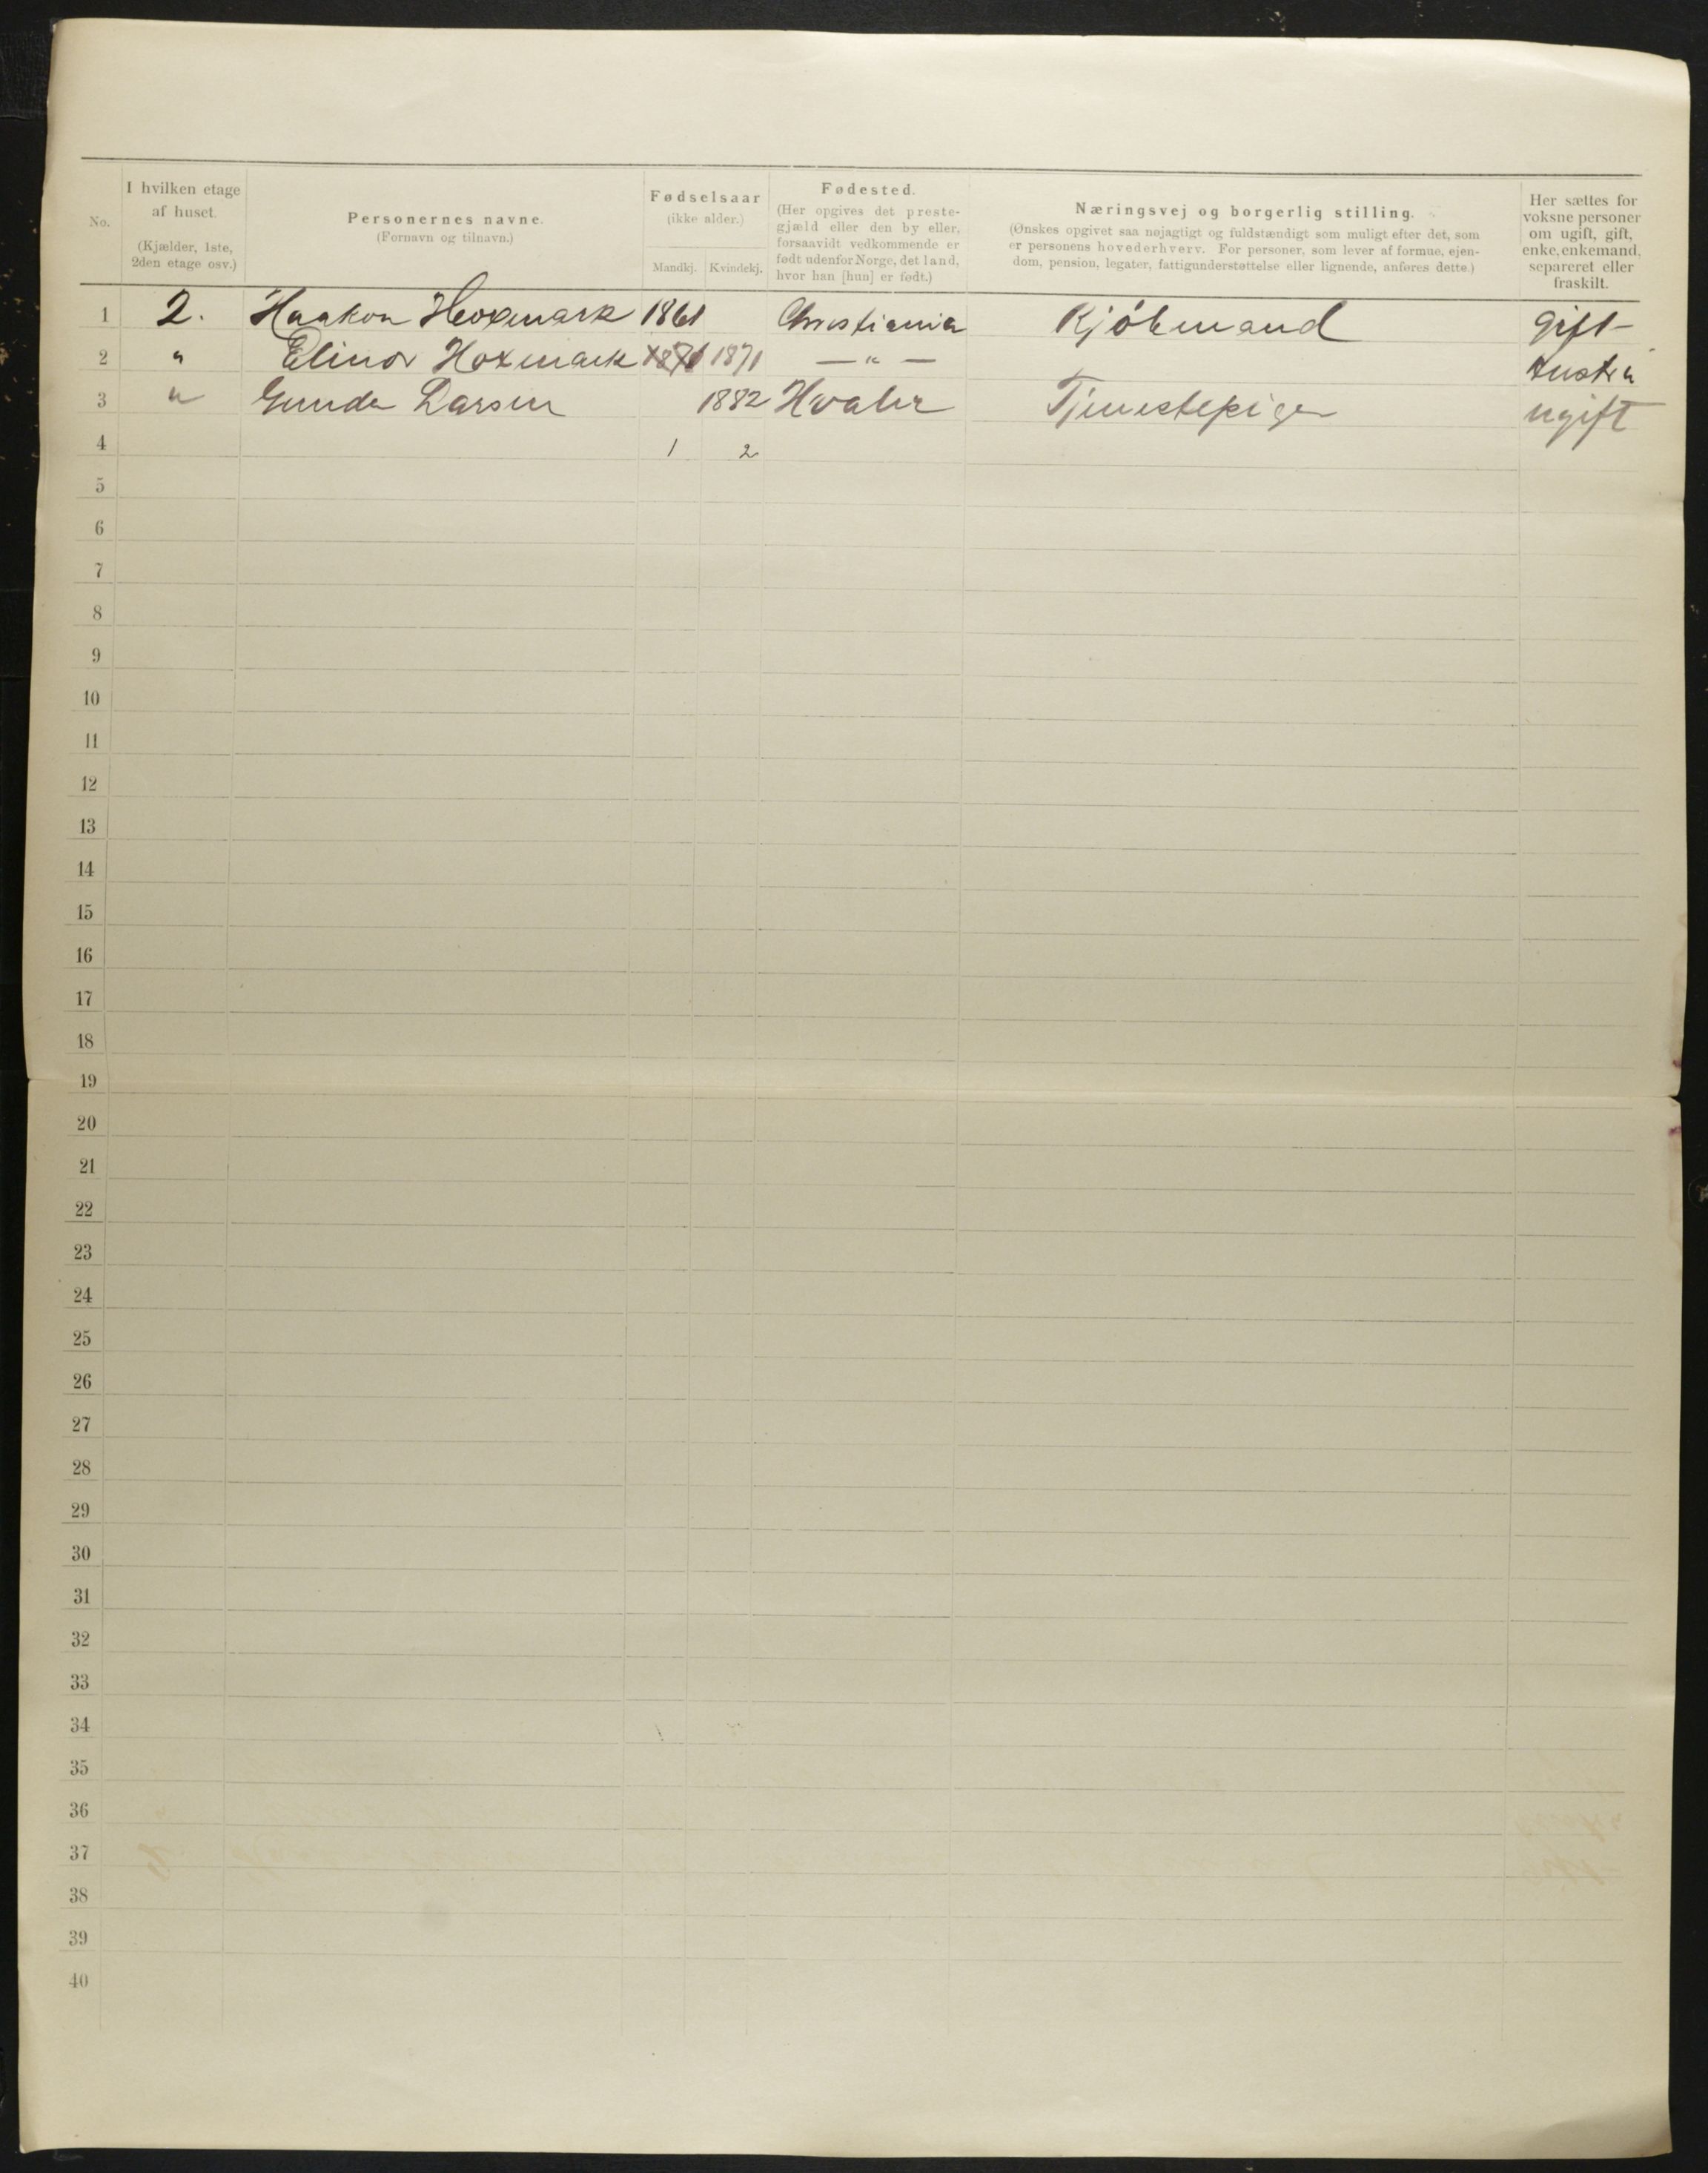 No.
I hvilken etage
af huset.
(Kjælder, 1ste,
2den etage osv.)
Personernes navne.
(Fornavn og tilnavn.)
Fødselsaar
(ikke alder.)
Mandkj. Kvindekj.
Fødested.
(Her opgives det preste-
gjæld eller den by eller,
forsaavidt vedkommende er
født udenfor Norge, det land,
hvor han [hun] er født.)
Næringsvej og borgerlig stilling.
(Ønskes opgivet saa nøjagtigt og fuldstændigt som muligt efter det, som
er personens hovederhverv. For personer, som lever af formue, ejen-
dom, pension, legater, fattigunderstøttelse eller lignende, anføres dette.)
Her sættes for
voksne personer
om ugift, gift,
enke, enkemand,
separeret eller
fraskilt.
1 2. Haakon Hoxmark 1861 Christiania Kjöbmand gift
2 " Elinor Hoxmark 1871 1871 — " — hustru
3 " Gunda Larsen 1882 Hvaler Tjenestepige ugift
4 1 2
5
6
7
8
9
10
11
12
13
14
15
16
17
18
19
20
21
22
23
24
25
26
27
28
29
30
31
32
33
34
35
36
37
38
39
40